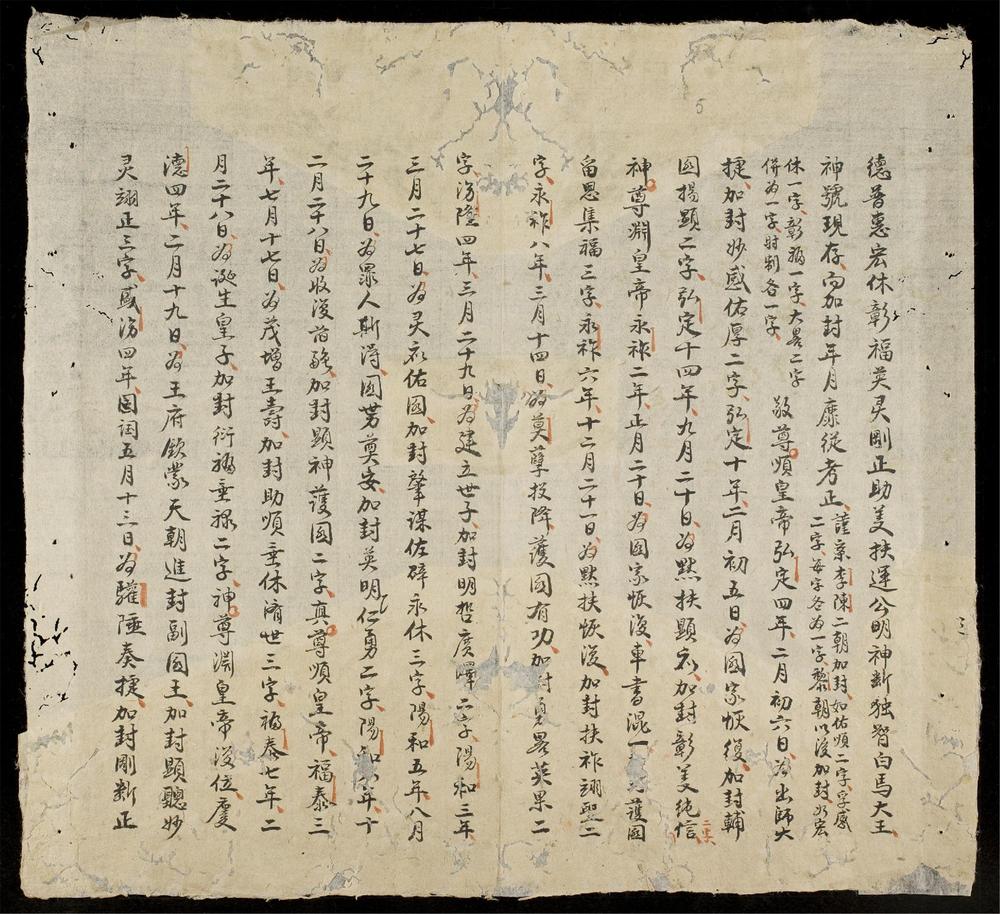 德普惠宏休彰福英灵剛正助美扶運公明神断独智白馬大王
神號現存而加封年月靡従考正謹京李陳二朝加封如佑順二字孚感
二字每字各為一字黎朝以後加封如宏
休一字彰福一字大畧二字
併為一字封制各一字敬尊順皇帝弘定四年二月初六日為出師大
捷加封妙感佑厚二字弘定十年二月初五日為國家恢復加封輔
國揚顯二字弘定十四年九月二十日為默扶顯应加封彰美純信二字
神尊淵皇帝永祚二年正月二十日為國家恢復車書混一護國
畱恩集福三字永祚六年十二月二十一日為默扶恢復加封扶祚翊聖二
字永祚八年三月十四日為莫孽投降護國有功加封勇畧英果二
字汸隆四年三月二十九日為建立世子加封明哲廣暉二字陽和三年
三月二十七日為灵应佑國加封肇謀佐辟永休三字陽和五年八月
二十九日為罪人斯得國势奠安加封英明仁勇二字陽和八年十
二月二十八日為收復加封顯神護國二字真尊順皇帝福泰三
年七月十七日為茂增王壽加封助順垂休濟世三字福泰七年二
月二十八日為誕生皇子加封衍福垂祿二字神尊淵皇帝復位慶
德四年二月十九日為王府欽蒙天朝進封副國王加封顯聽妙
灵翊正三字盛汸四年国闰五月十三日為驩陲奏捷加封剛断正